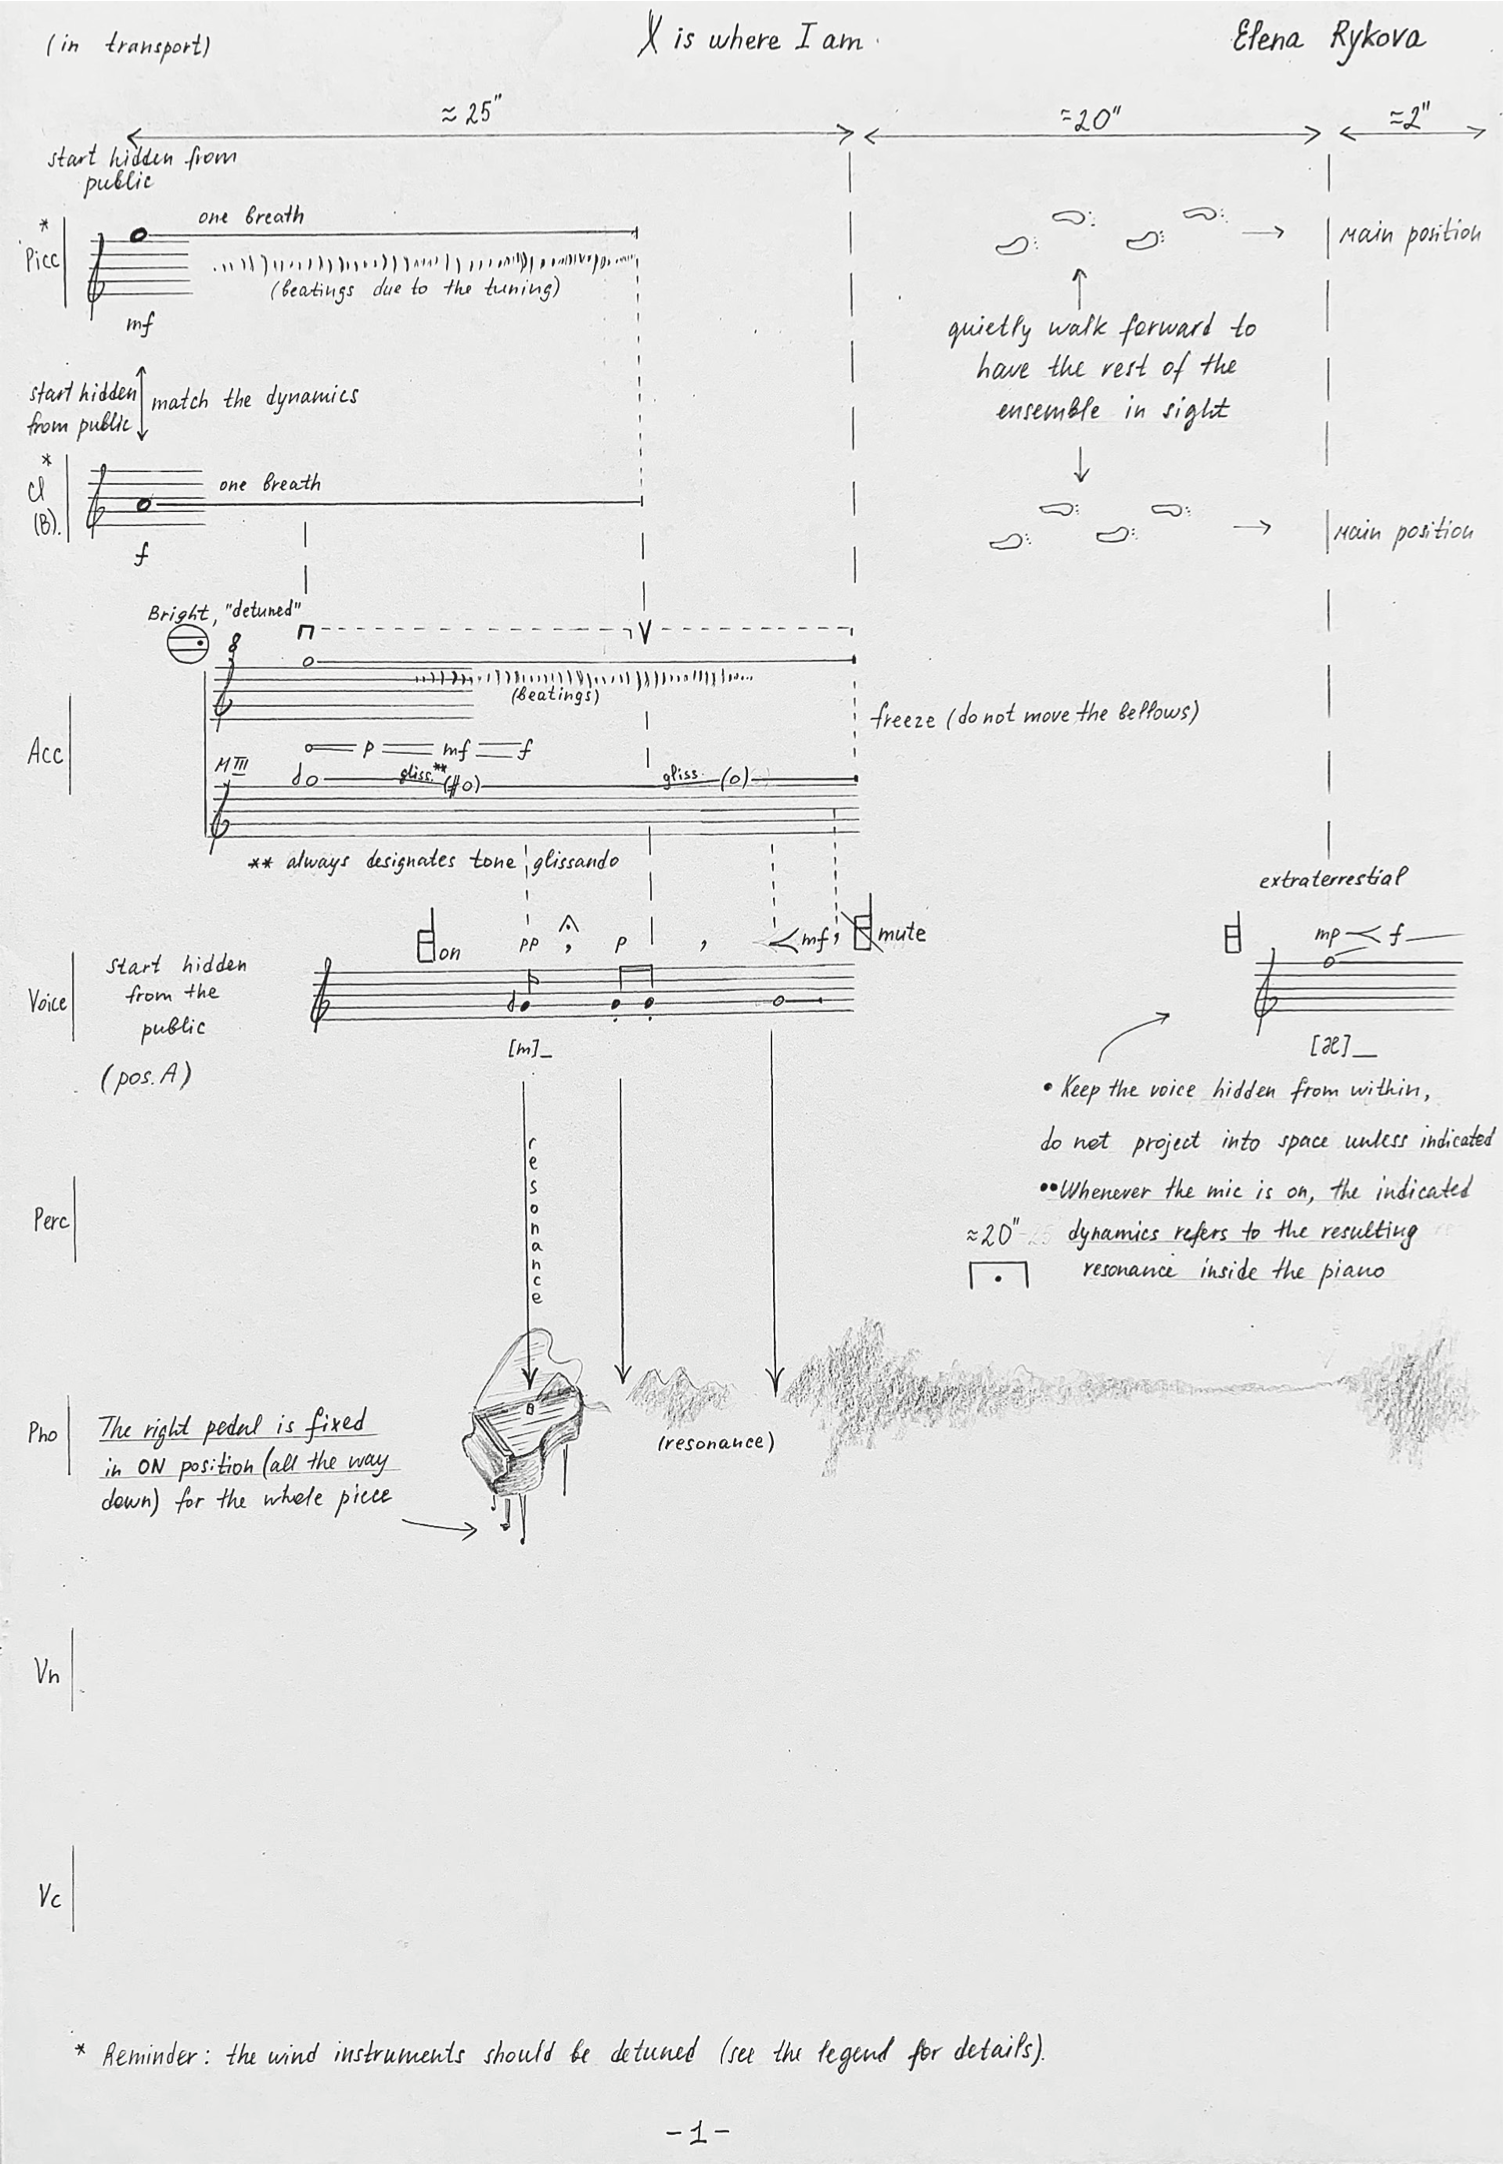 (in transport)
X is where I am
Elena Rykova
≈ 25"
≈20"
≈2"
start hidden from
public
*
Picc
one breath
(beatings due to the tuning)
mf
Main position
quietly walk forward to
have the rest of the
ensemble in sight
start hidden
from public
match the dynamics
*
Cl
(B).
one breath
f
Main position
Bright, "detuned"
8
(beatings)
Acc
freeze (do not move the bellows)
p mf f
MIII
gliss.** (#o)
gliss. (o)
** always designates tone glissando
extraterrestial
Voice
start hidden
from the
public
(pos. A)
on
pp , p , mf,
mute
mp f
[m]_
[æ]_
• Keep the voice hidden from within,
do not project into space unless indicated
•• Whenever the mic is on, the indicated
dynamics refers to the resulting
resonance inside the piano
≈20"
resonance
Perc
Pno
The right pedal is fixed
in ON position (all the way
down) for the whole piece
(resonance)
Vn
Vc
* Reminder: the wind instruments should be detuned (see the legend for details).
-1-